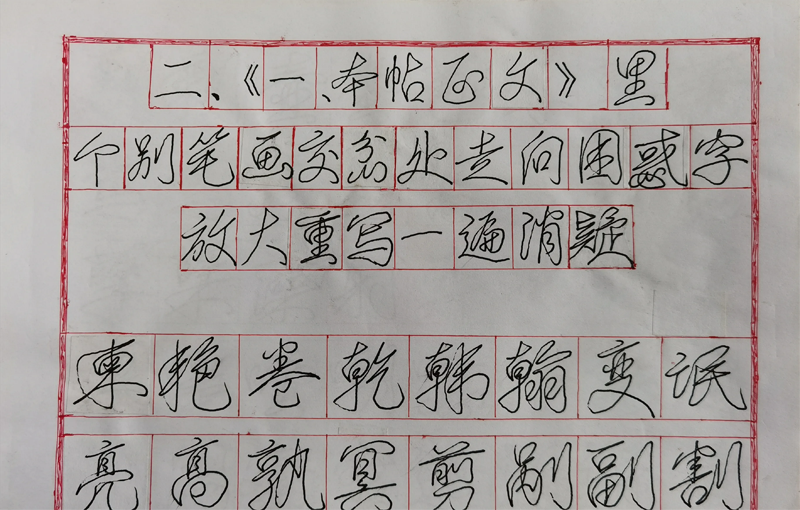 二、《一、本帖正文》里
个别笔画交岔处走向困惑字
放大重写一遍消疑
東艳卷乾韩翰变氓
亮高孰冥剪剐副割